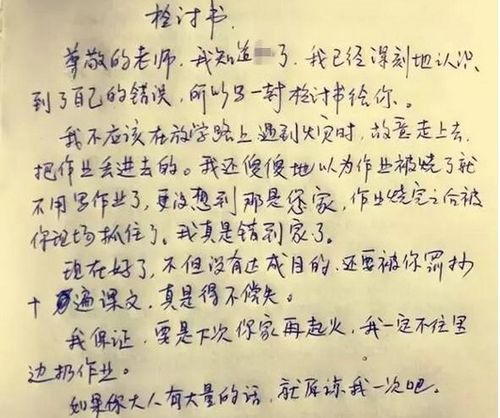 检讨书
尊敬的老师，我知道了，我已经深刻地认识
到了自己的错误，所以写一封检讨书给你。
我不应该在放学路上遇到火灾时，故意走上去，
把作业丢进去的。我还傻傻地以为作业被烧了就
不用写作业了，更没想到那是您家，作业烧完之后被
你现场抓住了。我真是错到家了。
现在好了，不但没有达成目的，还要被你罚抄
十遍课文，真是得不偿失。
我保证，要是下次你家再起火，我一定不往里
边扔作业。
如果你大人有大量的话，就原谅我一次吧。